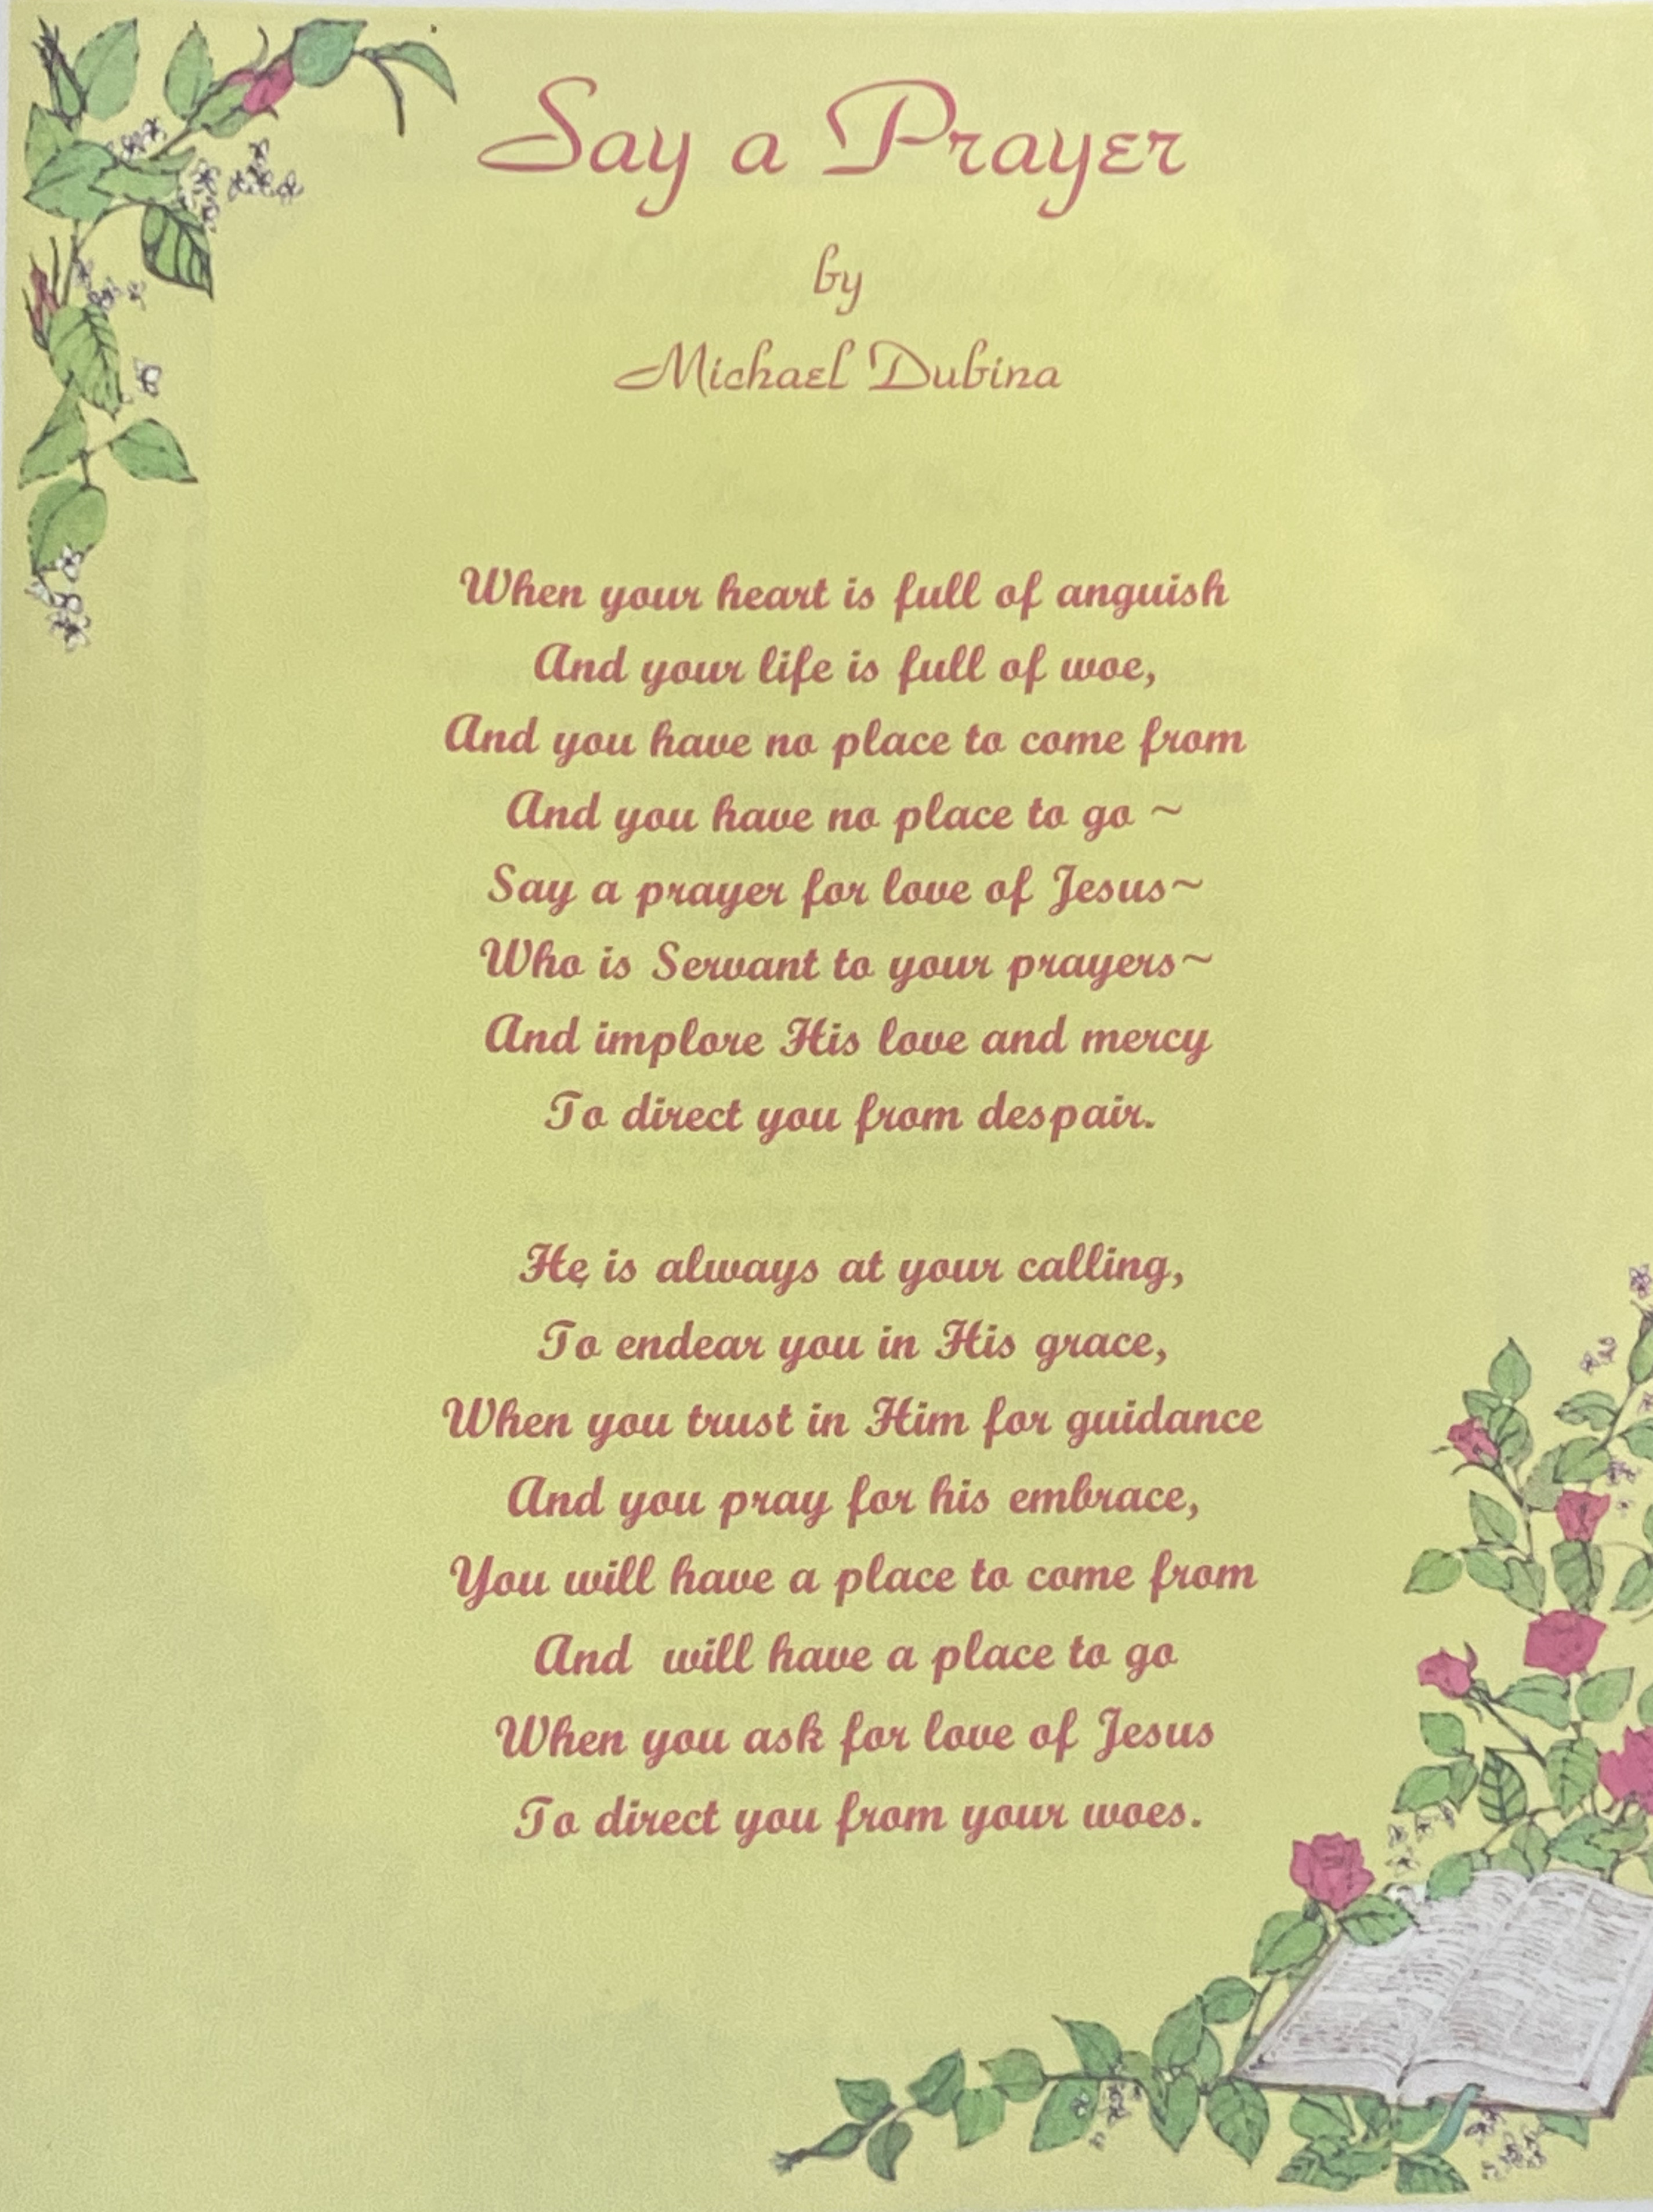 Say a Prayer
by
Michael Dubina
When your heart is full of anguish
And your life is full of woe,
And you have no place to come from
And you have no place to go ~
Say a prayer for love of Jesus~
Who is Servant to your prayers~
And implore His love and mercy
To direct you from despair.
He is always at your calling,
To endear you in His grace,
When you trust in Him for guidance
And you pray for his embrace,
You will have a place to come from
And will have a place to go
When you ask for love of Jesus
To direct you from your woes.